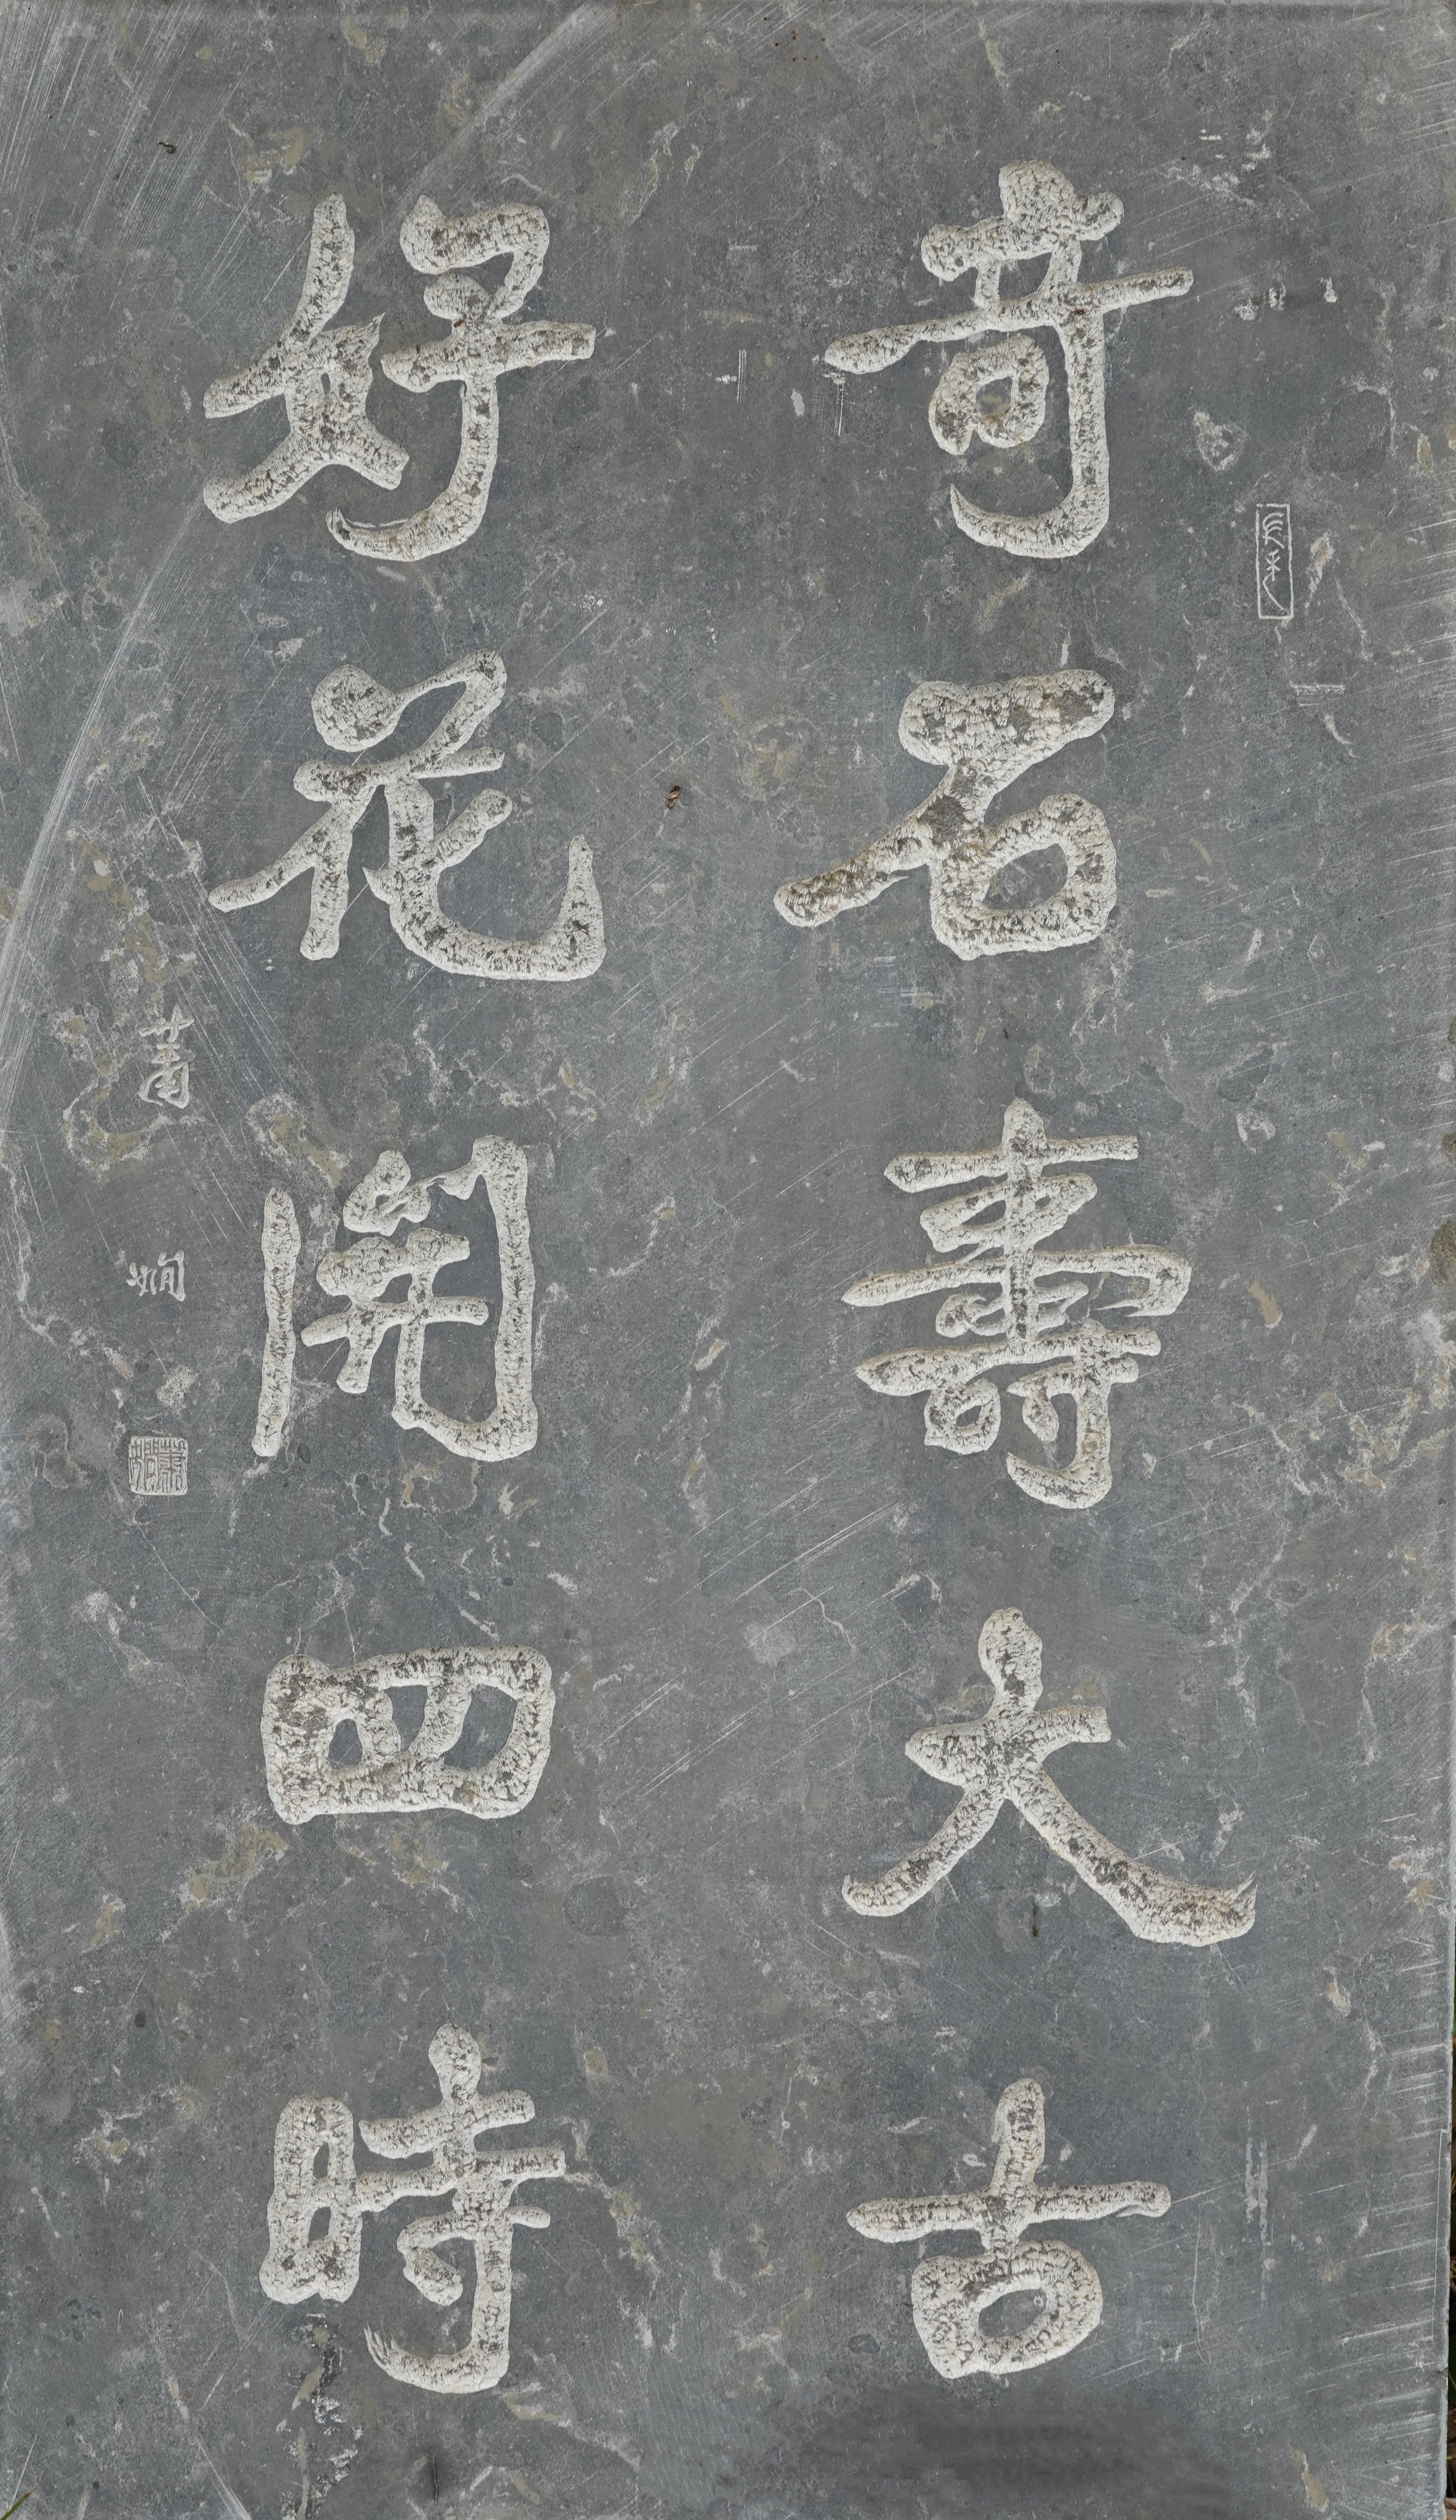 奇石壽太古
好花開四時
蕭嫻